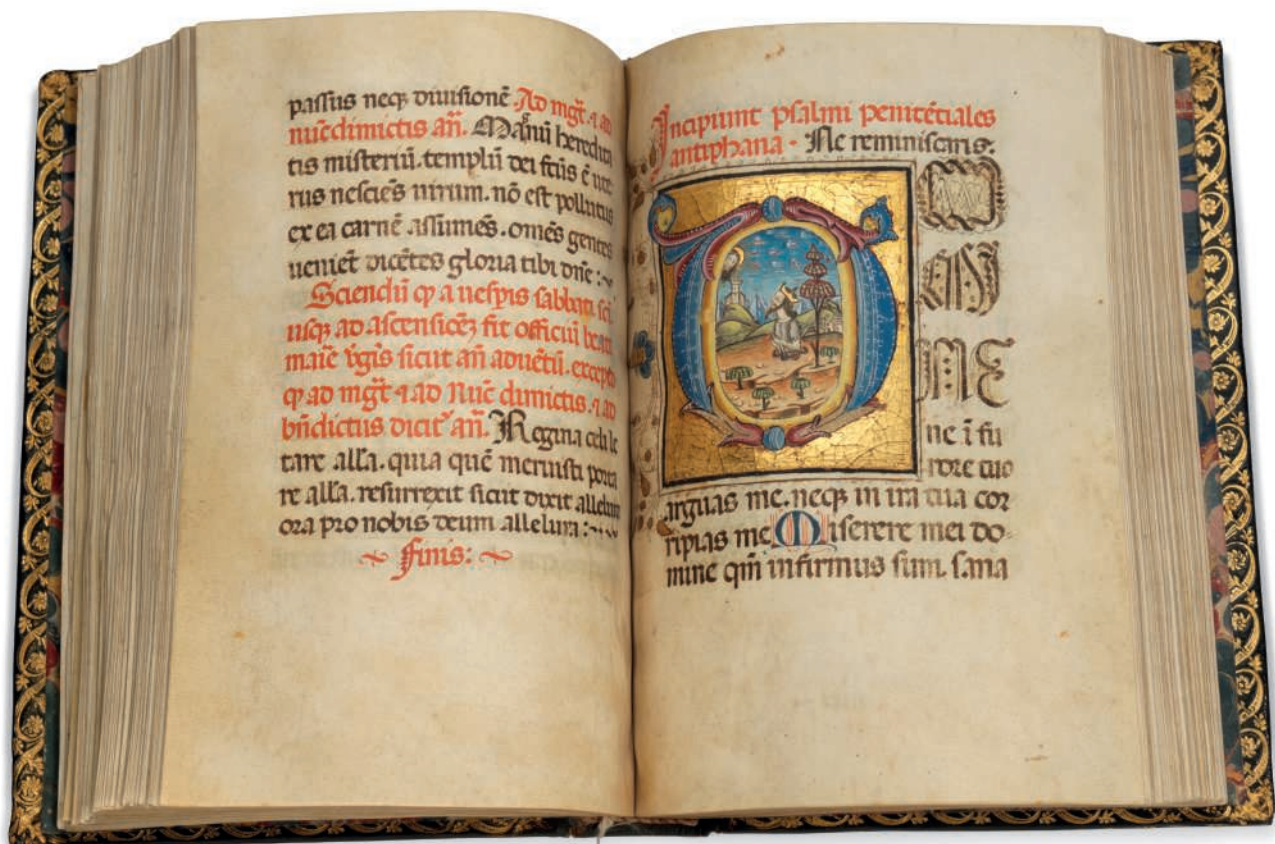 passus neqꝫ diuisionē. Ad mgt̄. ⁊ ad
nūc dimictis añ. Magnū heredita
tis misteriū. templū dei fcūs ē ute
rus nesciēs uirum. nō est pollutus
ex ea carnē assumēs. omēs gentes
ueniēt dicētes gloria tibi dñe :~
Sciendū ꝙ a uesp̄is sabbati sci
usqꝫ ad ascensiōeꝫ fit officiū beate
marie v̄gis sicut añ aduētū. excepto
ꝙ ad mgt̄ ⁊ ad Nūc dimictis. ⁊ ad
bn̄dictus dicit᷑ añ. Regina celi le
tare all'a. quia quē meruisti porta
re all'a. resurrexit sicut dixit alleluia
ora pro nobis deum alleluia :~
~ Finis: ~
Incipiunt psalmi penitētiales
antiphana · Ne reminiscaris:
D
ne ī fu
rore tuo
arguas me. neqꝫ in ira tua cor
ripias me Miserere mei do-
mine qm̄ infirmus sum. sana